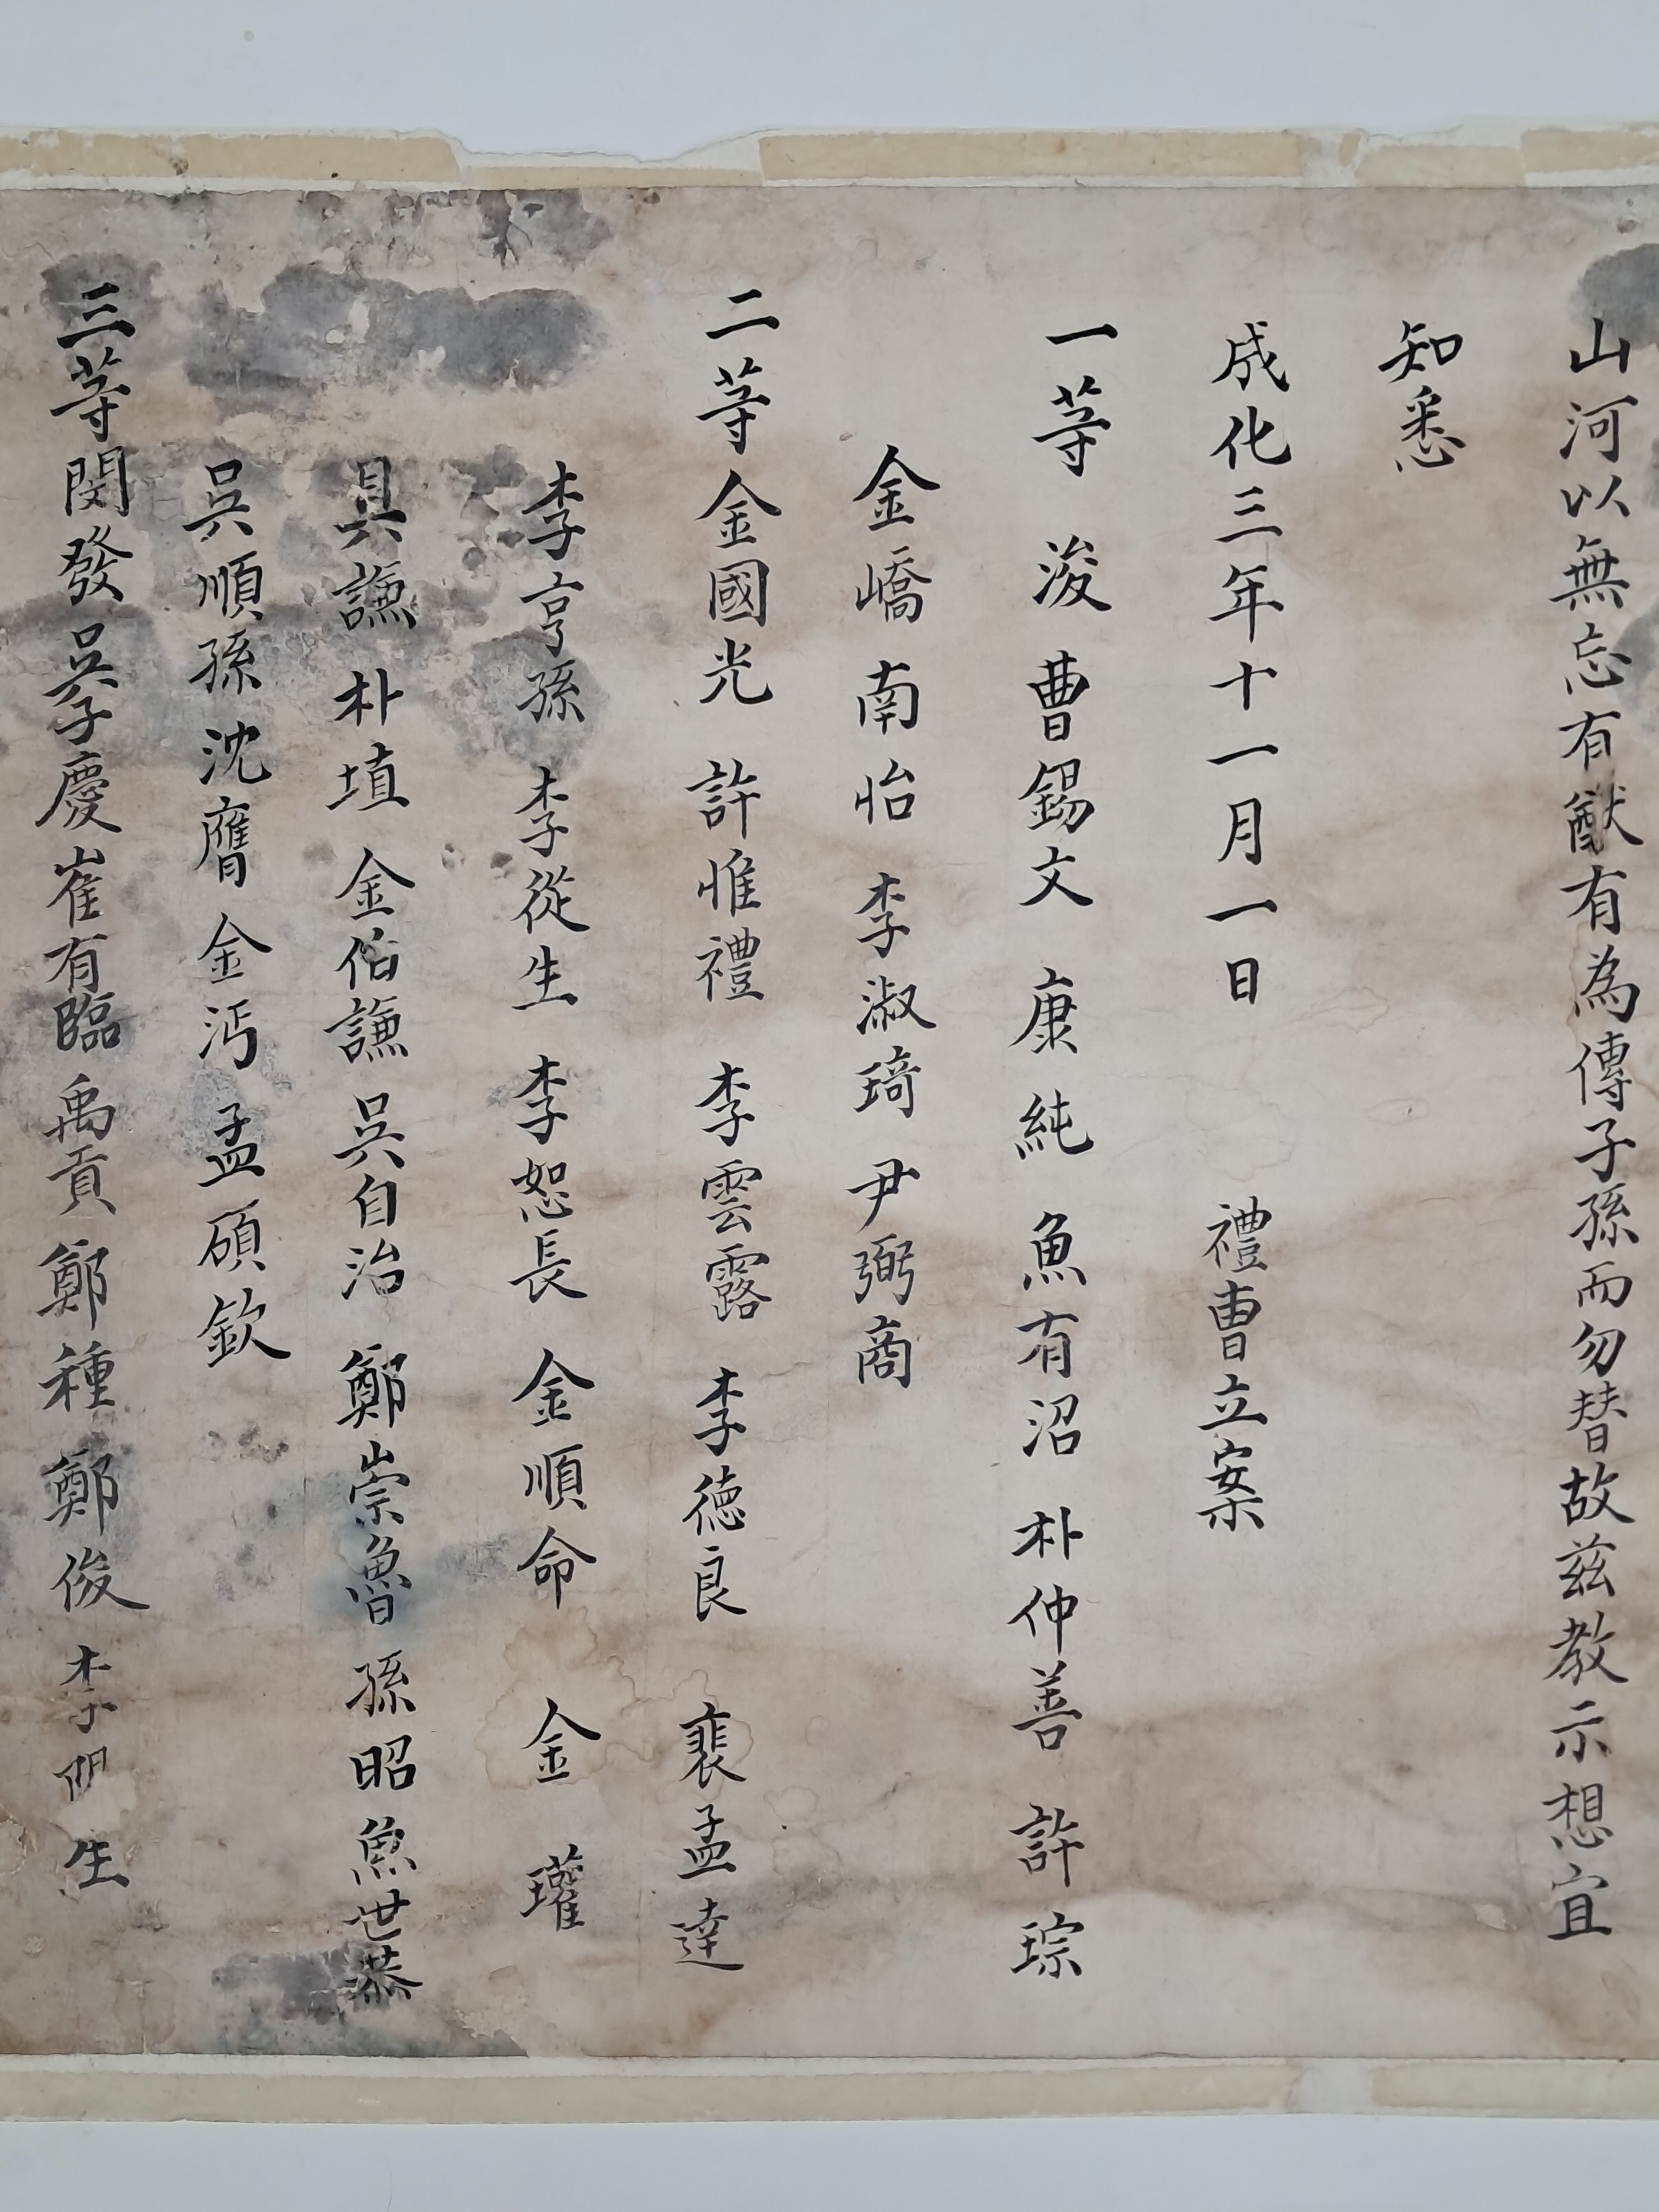 山河以無忘有猷有為傳子孫而勿替故茲教示想宜
知悉
成化三年十一月一日 禮曹立案
一等 浚 曹錫文 康純 魚有沼 朴仲善 許琮
金嶠 南怡 李淑琦 尹弼商
二等 金國光 許惟禮 李雲露 李德良 裵孟達
李亨孫 李從生 李恕長 金順命 金瓘
具謙 朴埴 金伯謙 吳自治 鄭崇魯 孫昭 魚世恭
吳順孫 沈膺 金沔 孟碩欽
三等 閔發 吳子慶 崔有臨 禹貢 鄭種 鄭俊 李陽生